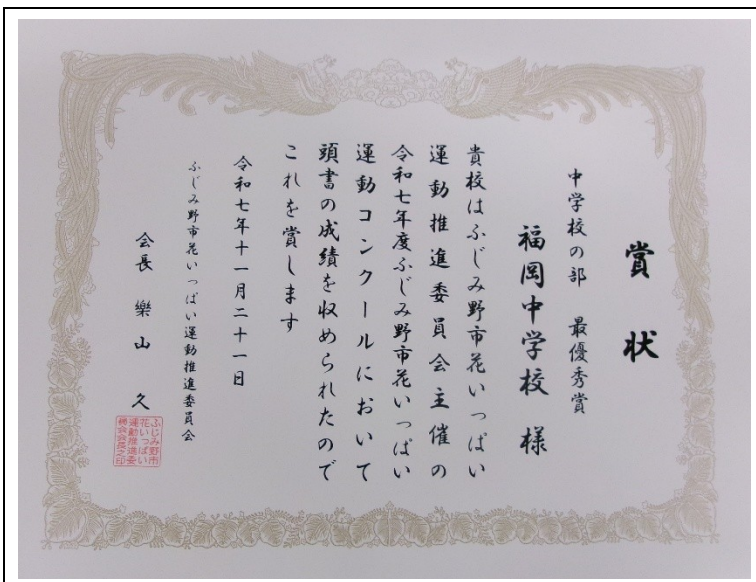 賞状
中学校の部　最優秀賞
福岡中学校　様
貴校はふじみ野市花いっぱい
運動推進委員会主催の
令和七年度ふじみ野市花いっぱい
運動コンクールにおいて
頭書の成績を収められたので
これを賞します
令和七年十一月二十一日
ふじみ野市花いっぱい運動推進委員会
会長　樂山　久
ふじみ野市
花いっぱい
運動推進委
員会会長之印